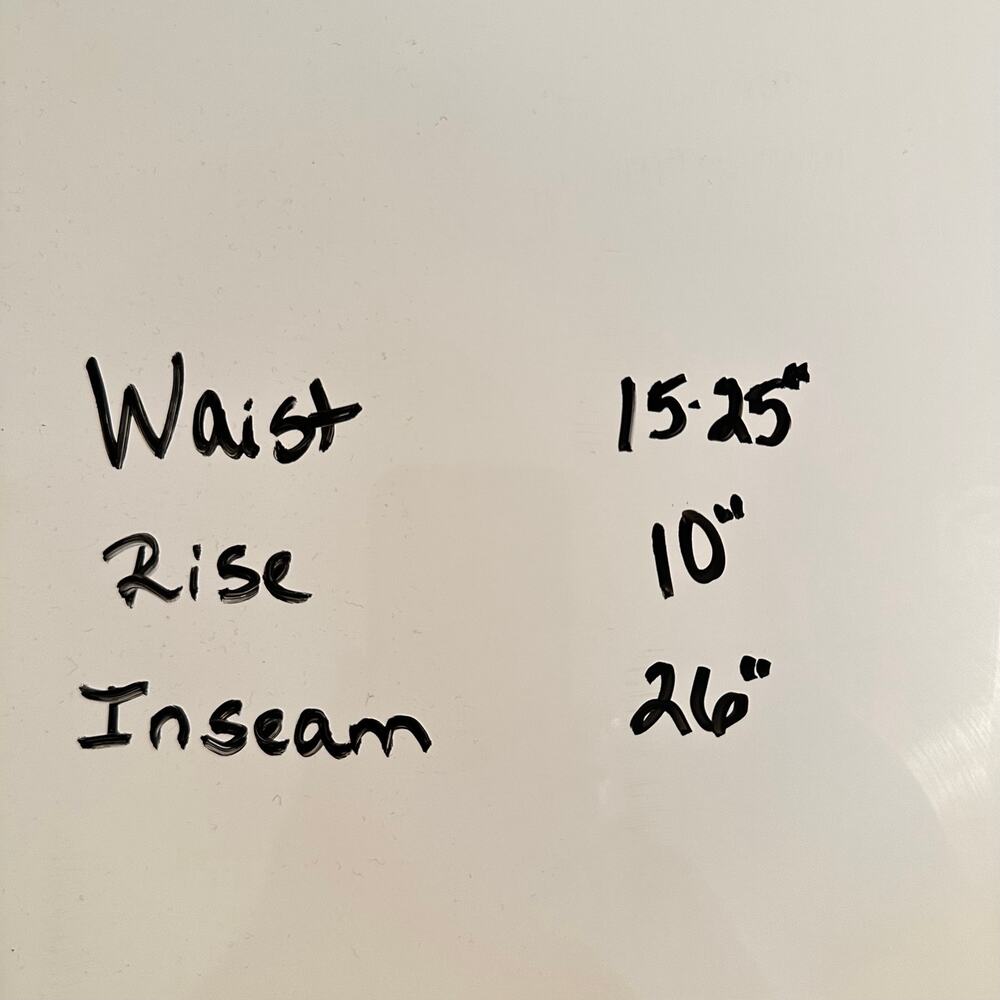 Waist 15-25"
Rise 10"
Inseam 26"